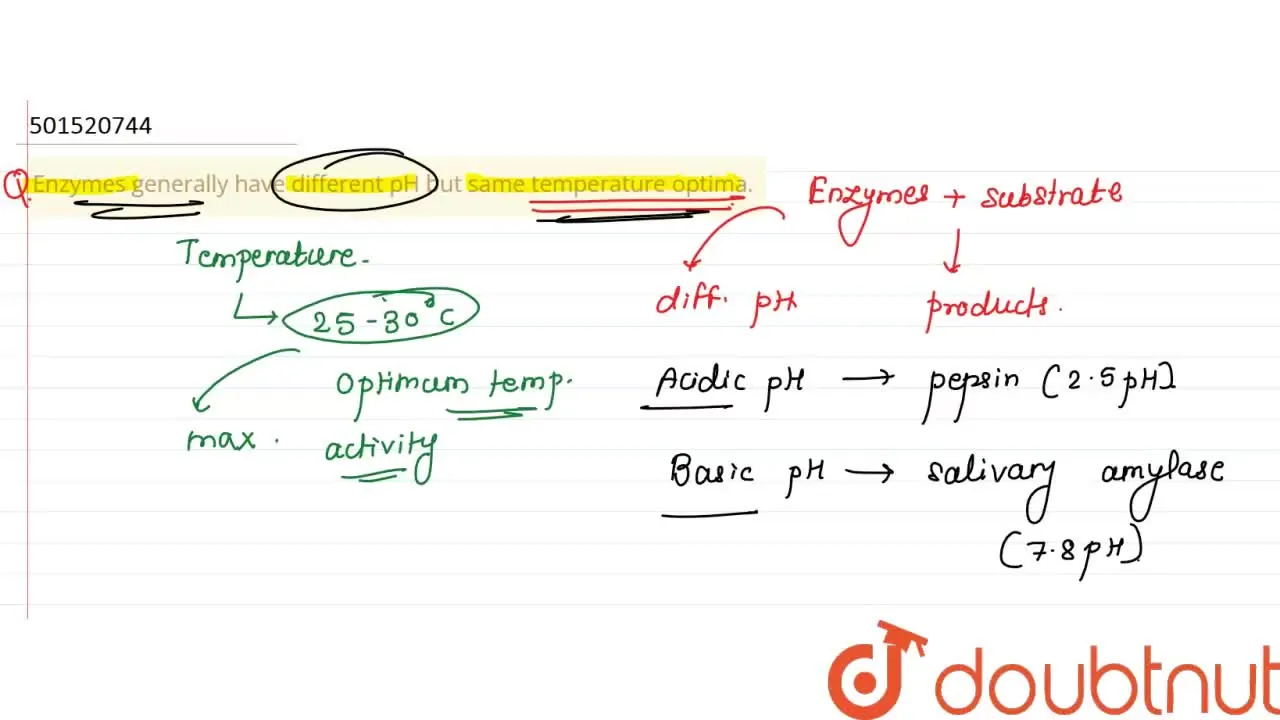 501520744
Q. Enzymes generally have different pH but same temperature optima.
Enzymes + substrate
Temperature.
diff. pH
products.
25-30°C
Optimum temp.
max. activity
Acidic pH → pepsin (2.5pH)
Basic pH → salivary amylase
(7.8pH)
doubtnut